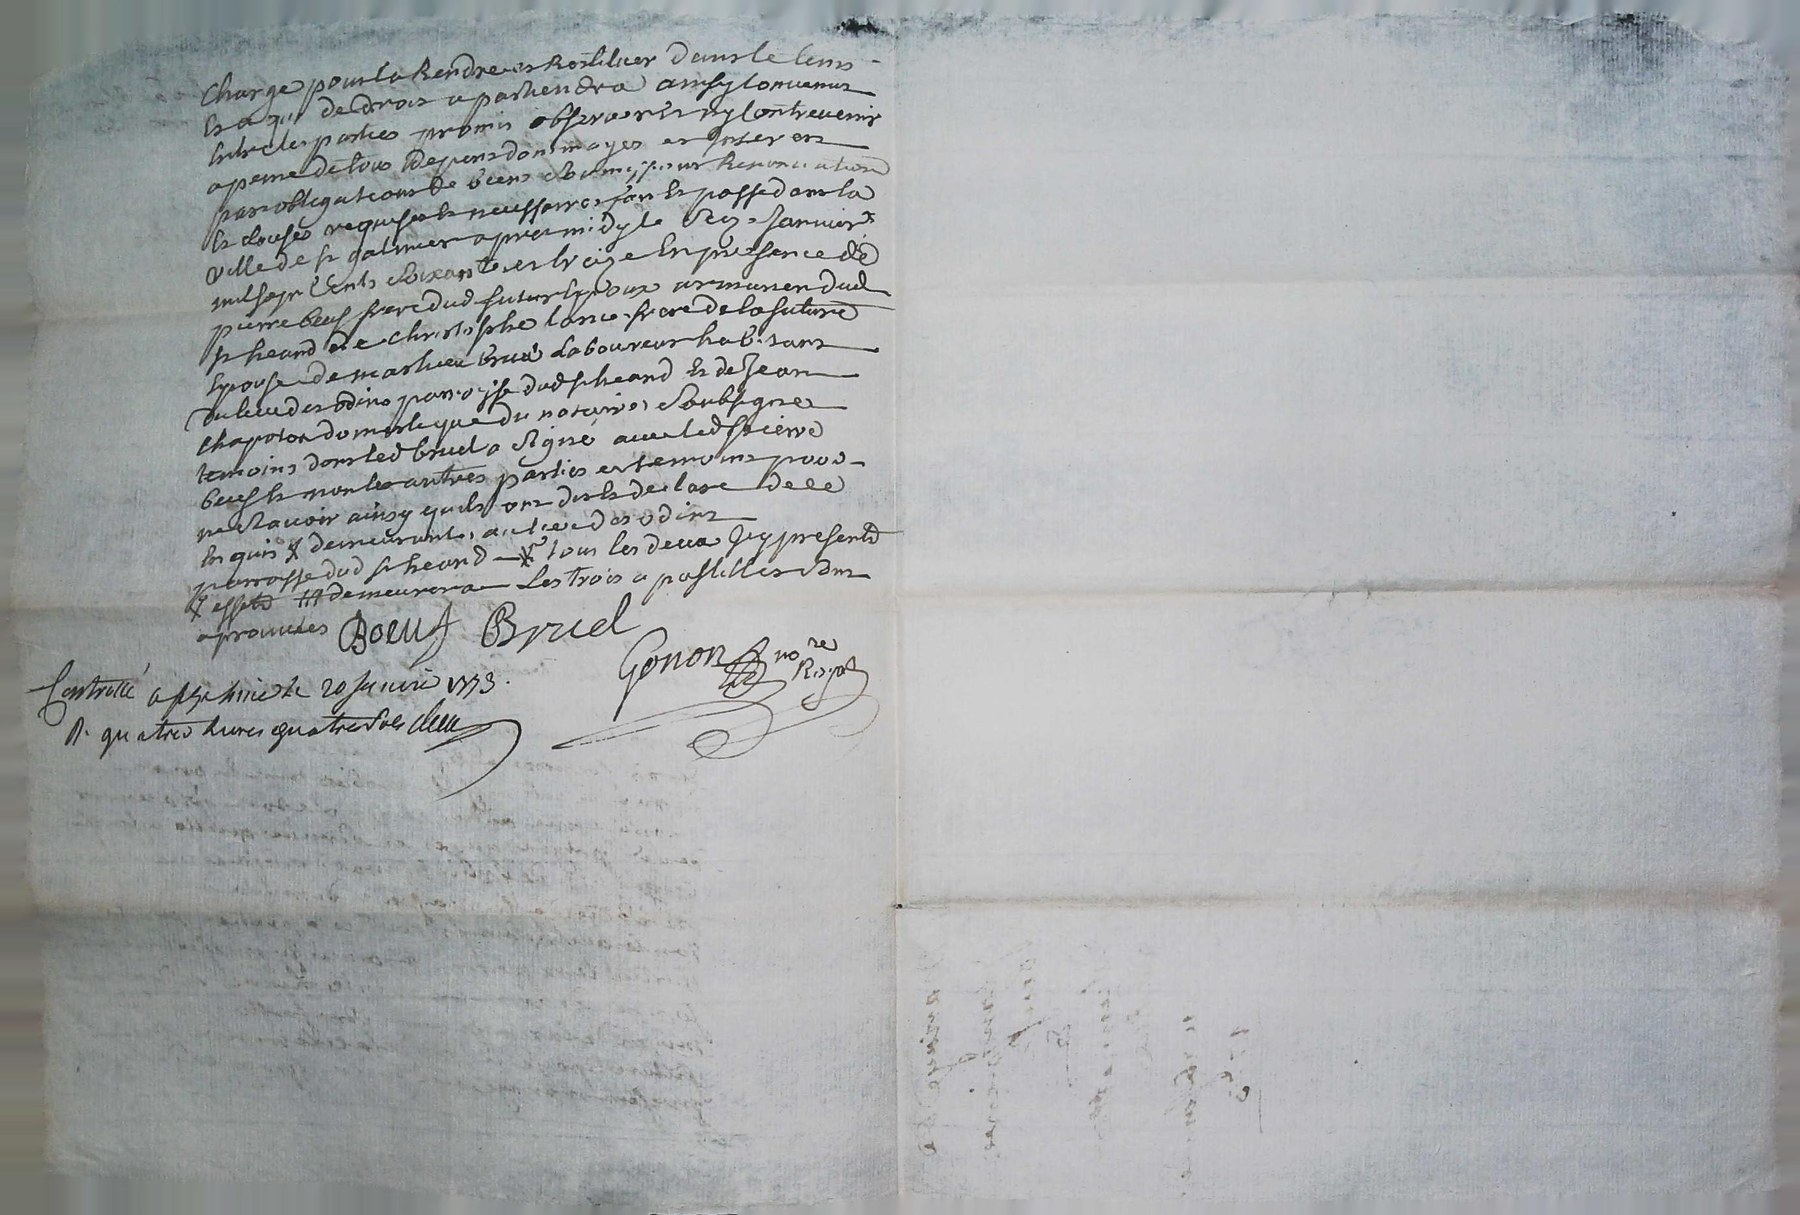 charge pour la Rendre et Restituer dans le tems
Et a qui de droit apartiendra ainsy convenu
Entre les parties promis observer Et ny Contrevenir
a peine de tous depens dommages et Interets
par obligations de biens soumissions Renonciations
Et clauses requises et necessaires fait Et passé dans la
ville de st galmier apres midy le Janvier
mil sept Cents Soixante et treize En presence de
pierre beuf frere dud futur Epoux armurier dud
st heand de Christophe frere de la future
Epouse de mathieu bruel Laboureur habitant
du lieu des odins paroisse dud st heand Et de Jean
chapoton domestique du notaire Soubsigné
temoins dont led bruel a Signé avec led pierre
beuf Et non les autres parties et temoins pour
ne Scavoir ainsy quils ont dit Et declaré de ce
Enquis demeurants au lieu des odins
parroisse dud st heand tous les deux Icy presents
effets demeurera Les trois apostilles sont
aprouvées Boeuf Bruel
Gonon nore
Royal
Controllé a st galmier le 20 Janvier 1773.
R. quatre livres quatre sols